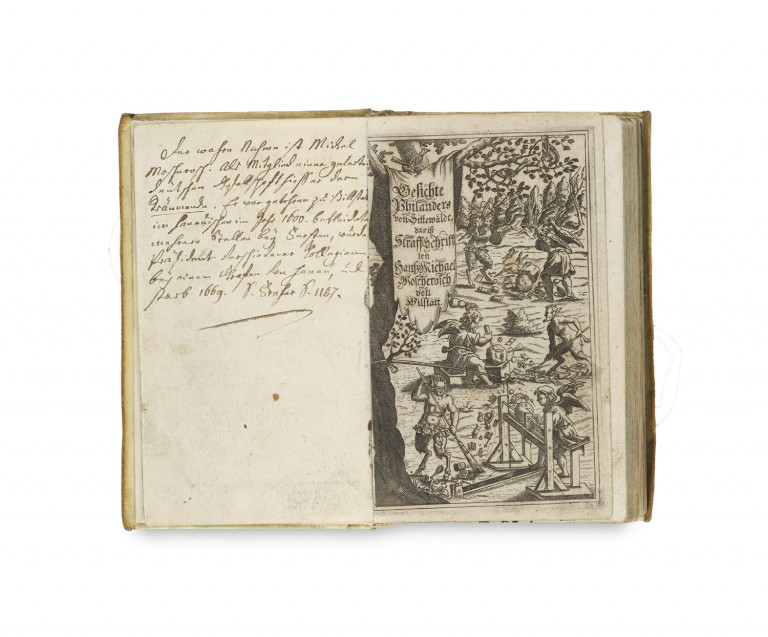 Der wahre Nahme ist Michel
Moscherosch. Als Mitglied einer gelehrten
deutschen Gesellschaft hiess er der
Träumende. Er war gebohren zu Willstädt
im Hanauischen im Jahr 1600. bekleidete
mehrere Stellen bey Fürsten, wurde
Präsident verschiedener Collegien
bey einem Grafen von Hanau, u.
starb 1669. S. 1167.
Gesichte
Philanders
von Sittewaldt,
das ist
Straff-Schrifften
Hanß-Michael
Moscherosch
von
Wilstätt.